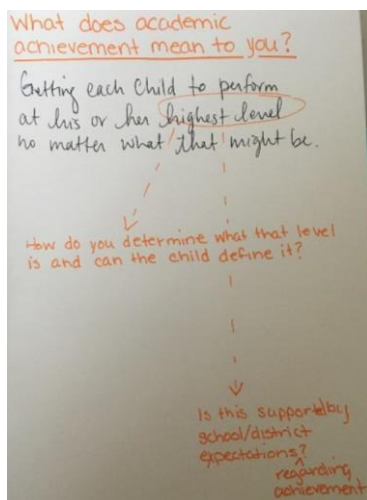 What does academic
achievement mean to you?
Getting each child to perform
at his or her highest level
no matter what that might be.
How do you determine what that level
is and can the child define it?
Is this supported by
school/district
expectations?
regarding
achievement